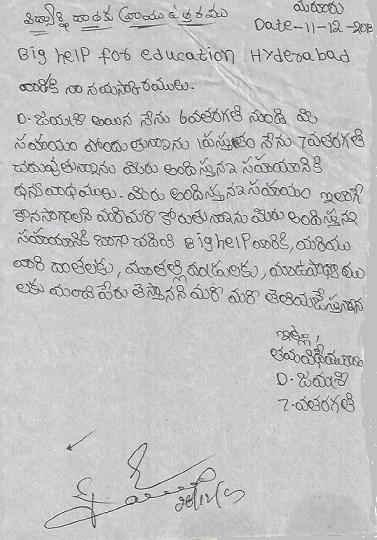 మదూరు
Date-11-12-20
Big help for education Hyderabad
వారికి నా నమస్కారములు.
D. జయశ్రీ అయిన నేను 6వతరగతి నుండి మీ
సహాయం పొందుతున్నాను ప్రస్తుతం నేను 7వతరగతి
చదువుతున్నాను మీరు అందిస్తున్న సహయానికి
ధన్యవాధములు. మీరు అందిస్తున్న సహాయం ఇలాగే
కొనసాగాలని మరిమరి కోరుతున్నాను మీరు అందిస్తున్న
సహయానికి బాగా చదివి Big help వారికి, మరియు
వారి దాతలకు, మాతల్లి దండ్రులకు,
లకు మంచి పేరు తెస్తానని మరి మరి తెలియజేస్తున్నాను
ఇట్లు,
D. జయశ్రీ
7. వతరగతి